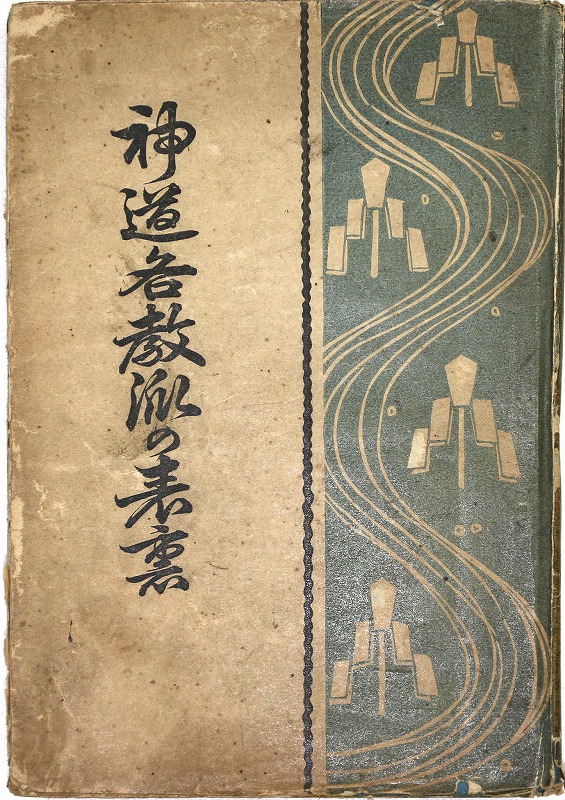 神道各教派の表裏